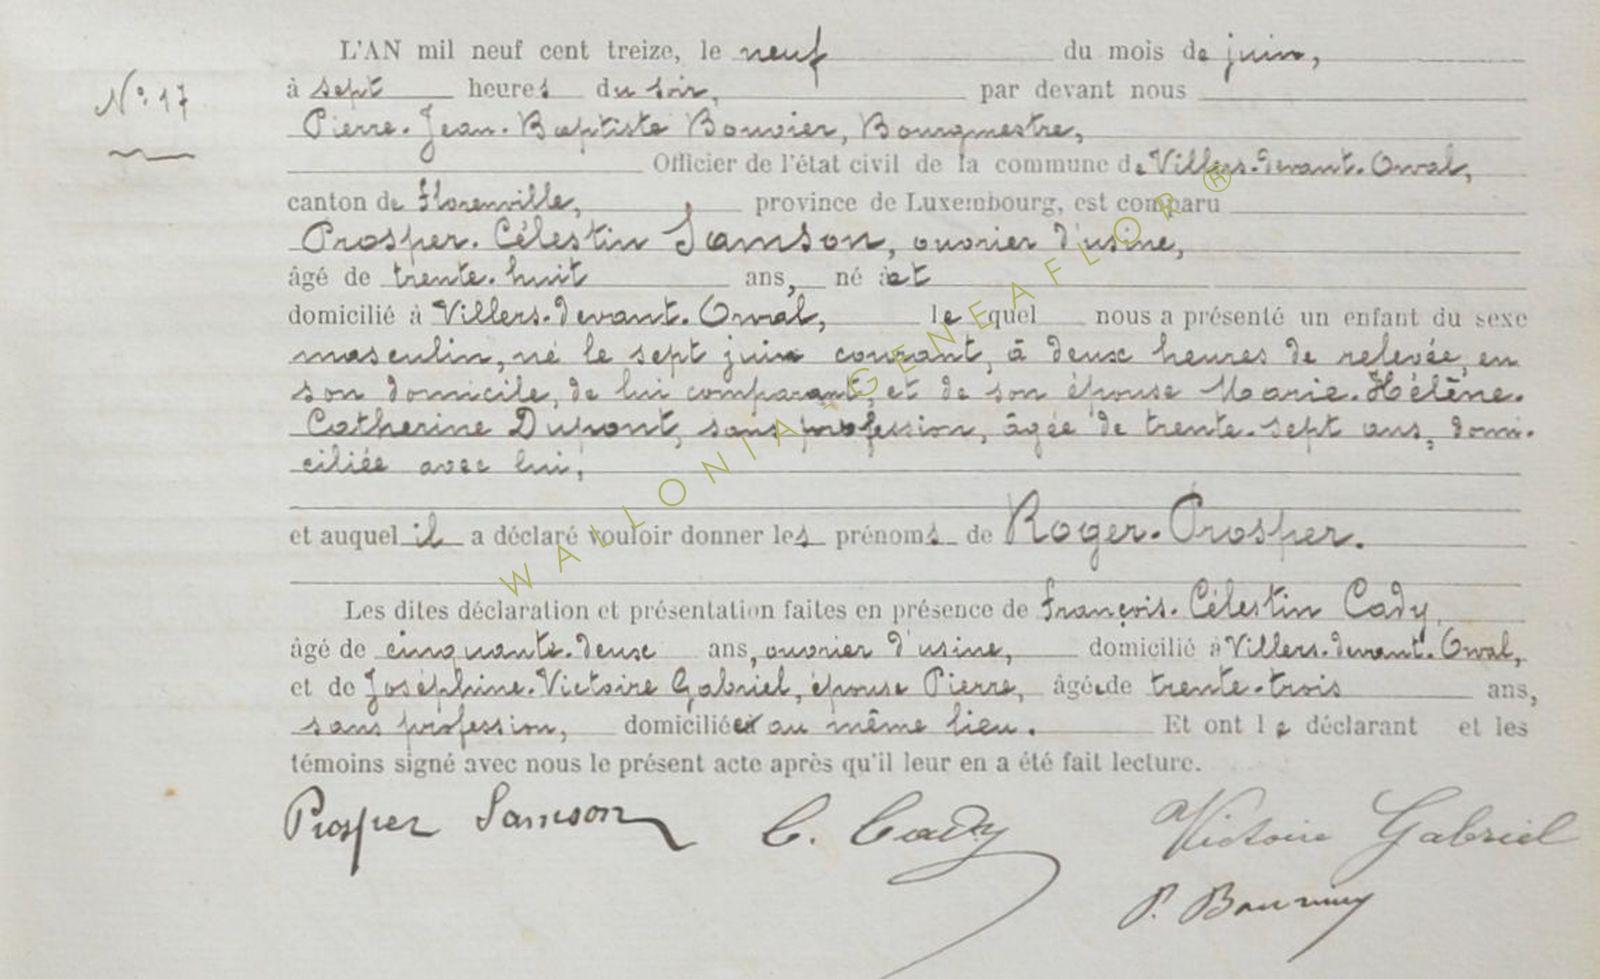 L'AN mil neuf cent treize, le neuf du mois de juin,
N°. 17
à sept heures du soir, par devant nous
Pierre-Jean-Baptiste Bouvier, Bourgmestre,
Officier de l'état civil de la commune de Villers-devant-Orval,
canton de Florenville, province de Luxembourg, est comparu
Prosper-Célestin Samson, ouvrier d'usine,
âgé de trente-huit ans, né à et
domicilié à Villers-devant-Orval, lequel nous a présenté un enfant du sexe
masculin, né le sept juin courant, à deux heures de relevée, en
son domicile, de lui comparant, et de son épouse Marie-Hélène-
Catherine Dupont, sans profession, âgée de trente-sept ans, domi-
ciliée avec lui,
et auquel il a déclaré vouloir donner les prénoms de Roger-Prosper.
Les dites déclaration et présentation faites en présence de François-Célestin Cady,
âgé de cinquante-deux ans, ouvrier d'usine, domicilié à Villers-devant-Orval,
et de Joséphine-Victoire Gabriel, épouse Pierre, âgée de trente-trois ans,
sans profession, domiciliée au même lieu. Et ont le déclarant et les
témoins signé avec nous le présent acte après qu'il leur en a été fait lecture.
Prosper Samson C. Cady Victoire Gabriel
P. Bouvier
WALLONIA-GENEAFLOR ®